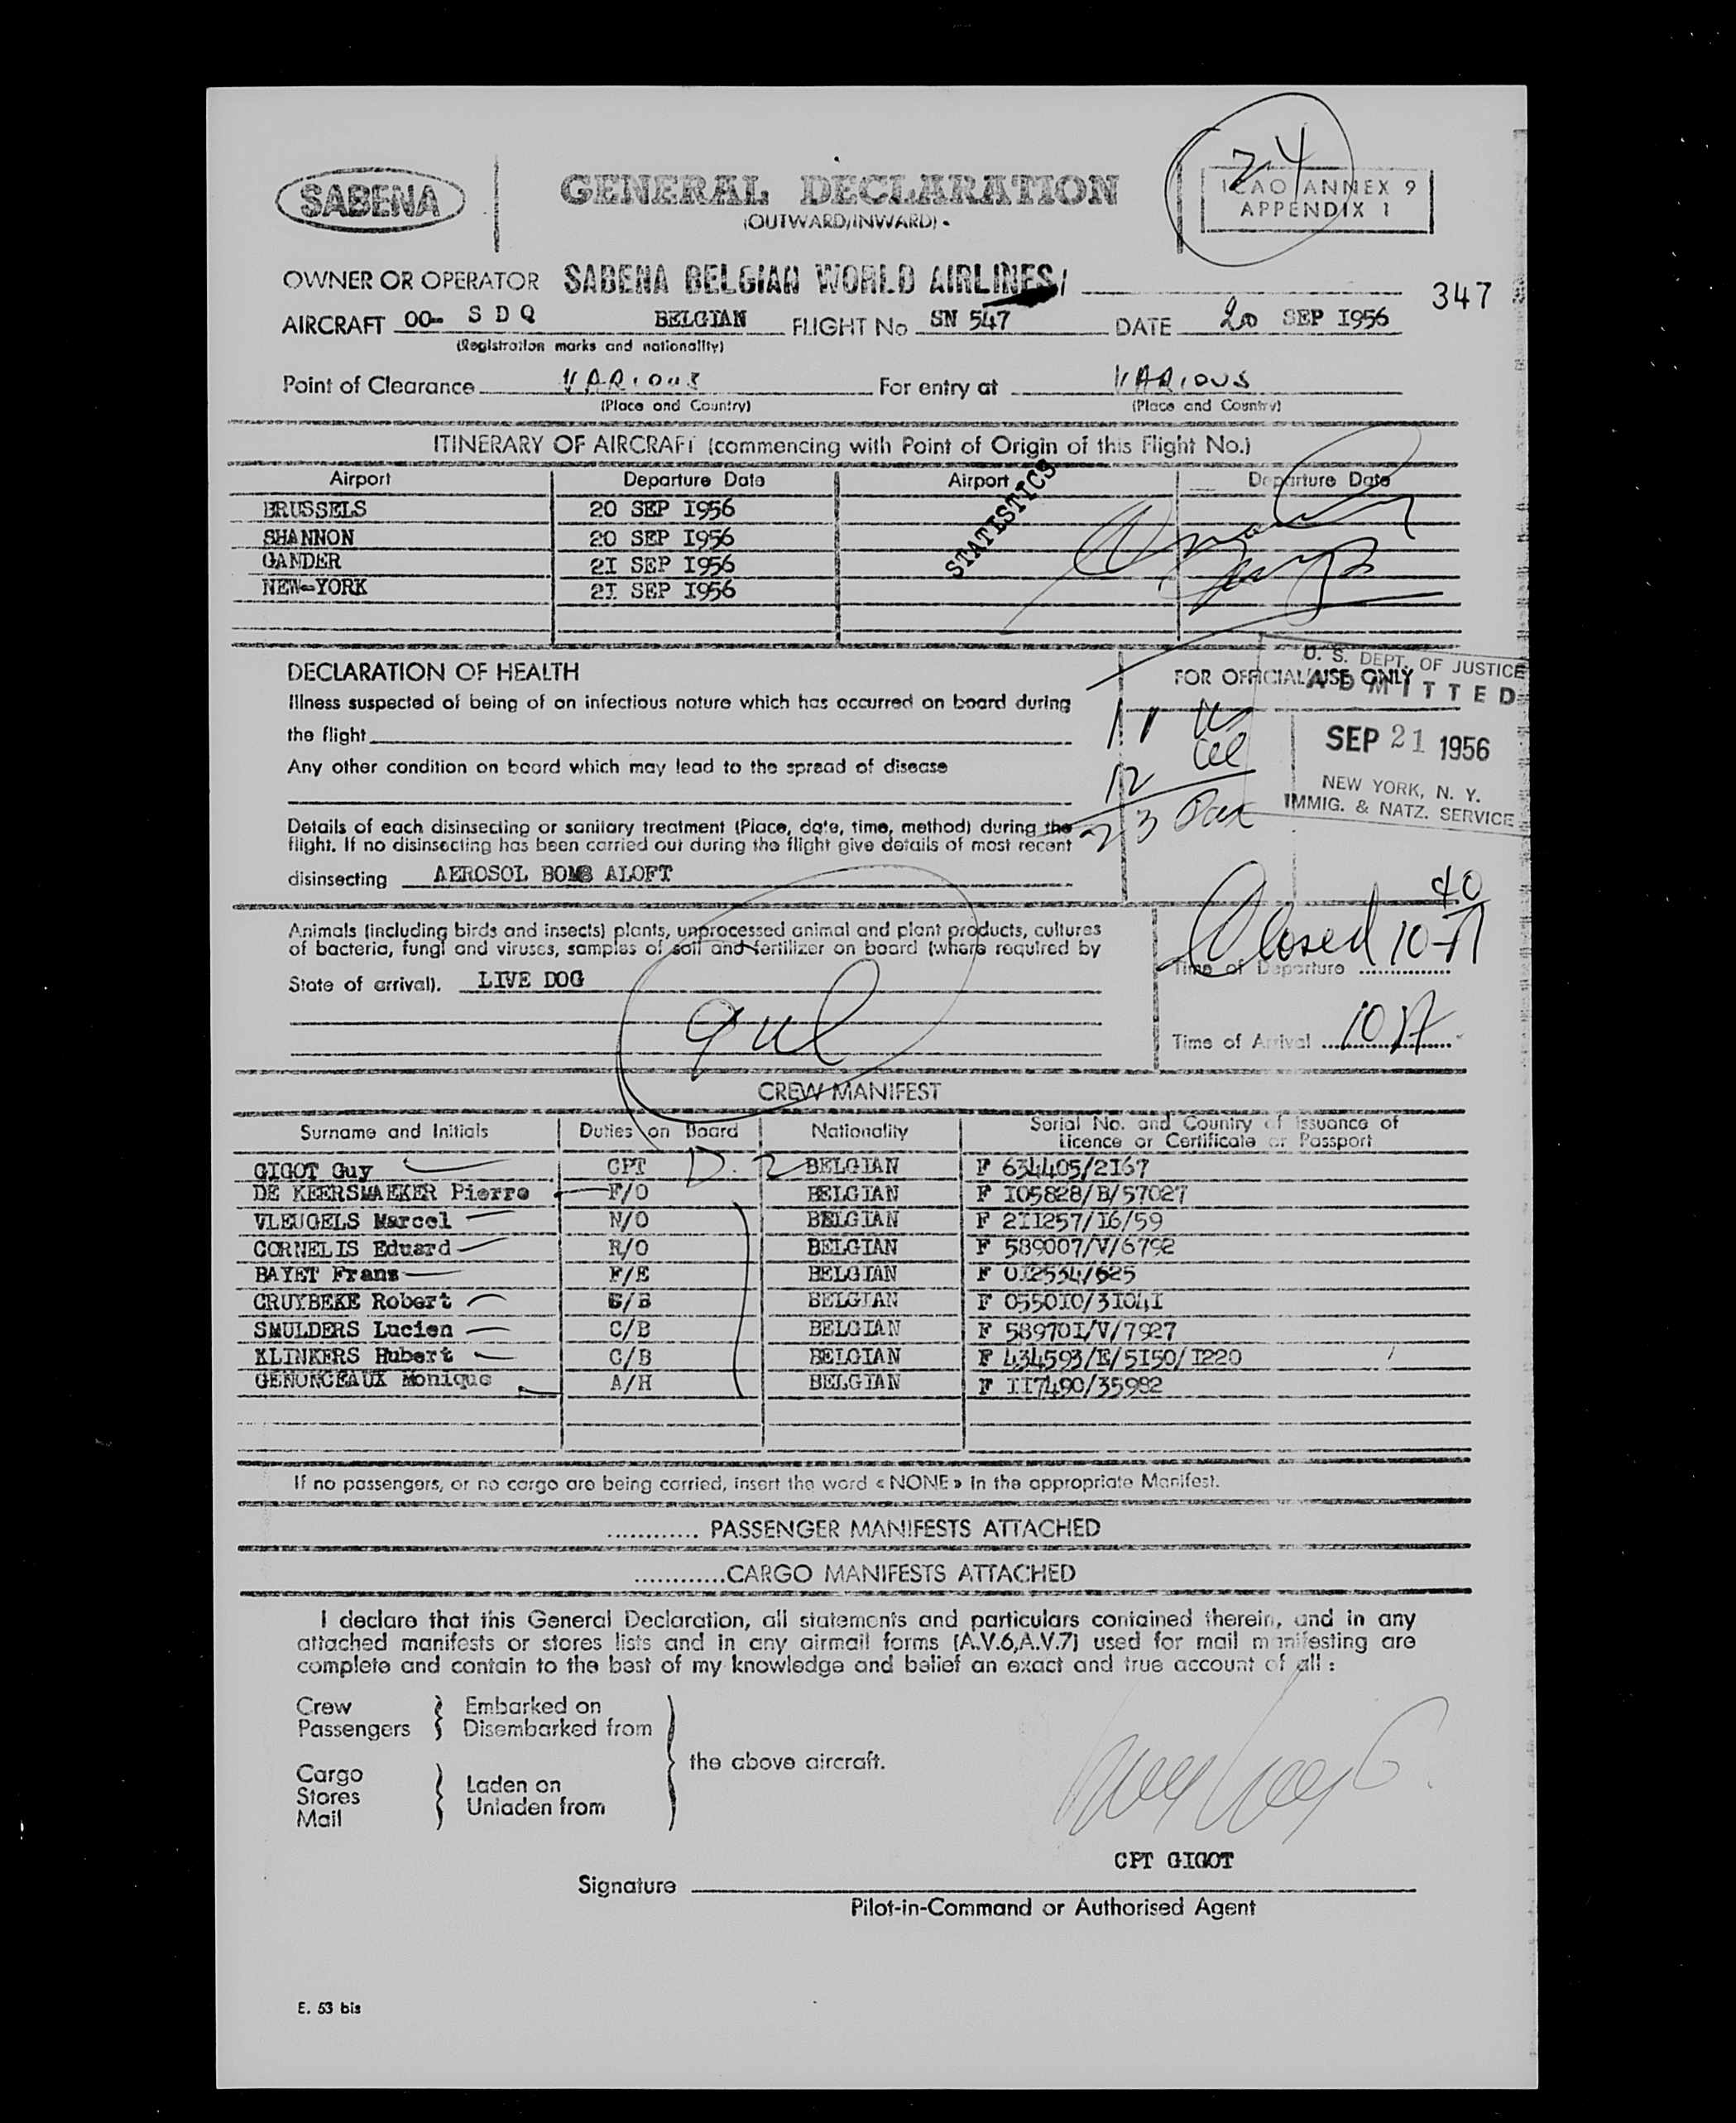 24
SABENA
GENERAL DECLARATION
(OUTWARD/INWARD)
ICAO ANNEX 9
APPENDIX 1
OWNER OR OPERATOR SABENA BELGIAN WORLD AIRLINES
347
AIRCRAFT OO- S D Q BELGIAN FLIGHT No SN 547 DATE 20 SEP I956
(Registration marks and nationality)
Point of Clearance VARIOUS For entry at VARIOUS
(Place and Country) (Place and Country)
ITINERARY OF AIRCRAFT (commencing with Point of Origin of this Flight No.)
Airport Departure Date Airport Departure Date
BRUSSELS 20 SEP I956
SHANNON 20 SEP I956
GANDER 2I SEP I956
NEW-YORK 2I SEP I956
STATISTICS
DECLARATION OF HEALTH
Illness suspected of being of an infectious nature which has occurred on board during
the flight
Any other condition on board which may lead to the spread of disease
Details of each disinsecting or sanitary treatment (Place, date, time, method) during the
flight. If no disinsecting has been carried out during the flight give details of most recent
disinsecting AEROSOL BOMB ALOFT
FOR OFFICIAL USE ONLY
U. S. DEPT. OF JUSTICE
ADMITTED
SEP 21 1956
NEW YORK, N. Y.
IMMIG. & NATZ. SERVICE
12
23 Pax
Animals (including birds and insects) plants, unprocessed animal and plant products, cultures
of bacteria, fungi and viruses, samples of soil and fertilizer on board (where required by
State of arrival). LIVE DOG
40
Closed
Time of Departure
Time of Arrival
CREW MANIFEST
Surname and Initials Duties on Board Nationality Serial No. and Country of Issuance of
Licence or Certificate or Passport
GIGOT Guy CPT BELGIAN F 634405/2I67
DE KEERSMAEKER Pierre F/O BELGIAN F I05828/B/57027
VLEUGELS Marcel N/O BELGIAN F 2II257/I6/59
CORNELIS Eduard R/O BELGIAN F 589007/V/6792
BAYET Frans F/E BELGIAN F 0I2534/625
CRUYBEKE Robert BELGIAN F 0550I0/3I04I
SMULDERS Lucien C/B BELGIAN F 58970I/V/7927
KLINKERS Hubert C/B BELGIAN F 434593/E/5I50/I220
GENONCEAUX Monique A/H BELGIAN F II7490/35982
If no passengers, or no cargo are being carried, insert the word « NONE » in the appropriate Manifest.
............ PASSENGER MANIFESTS ATTACHED
............CARGO MANIFESTS ATTACHED
I declare that this General Declaration, all statements and particulars contained therein, and in any
attached manifests or stores lists and in any airmail forms (A.V.6,A.V.7) used for mail manifesting are
complete and contain to the best of my knowledge and belief an exact and true account of all :
Crew Embarked on
Passengers Disembarked from
the above aircraft.
Cargo
Stores Laden on
Mail Unladen from
CPT GIGOT
Signature
Pilot-in-Command or Authorised Agent
E. 53 bis